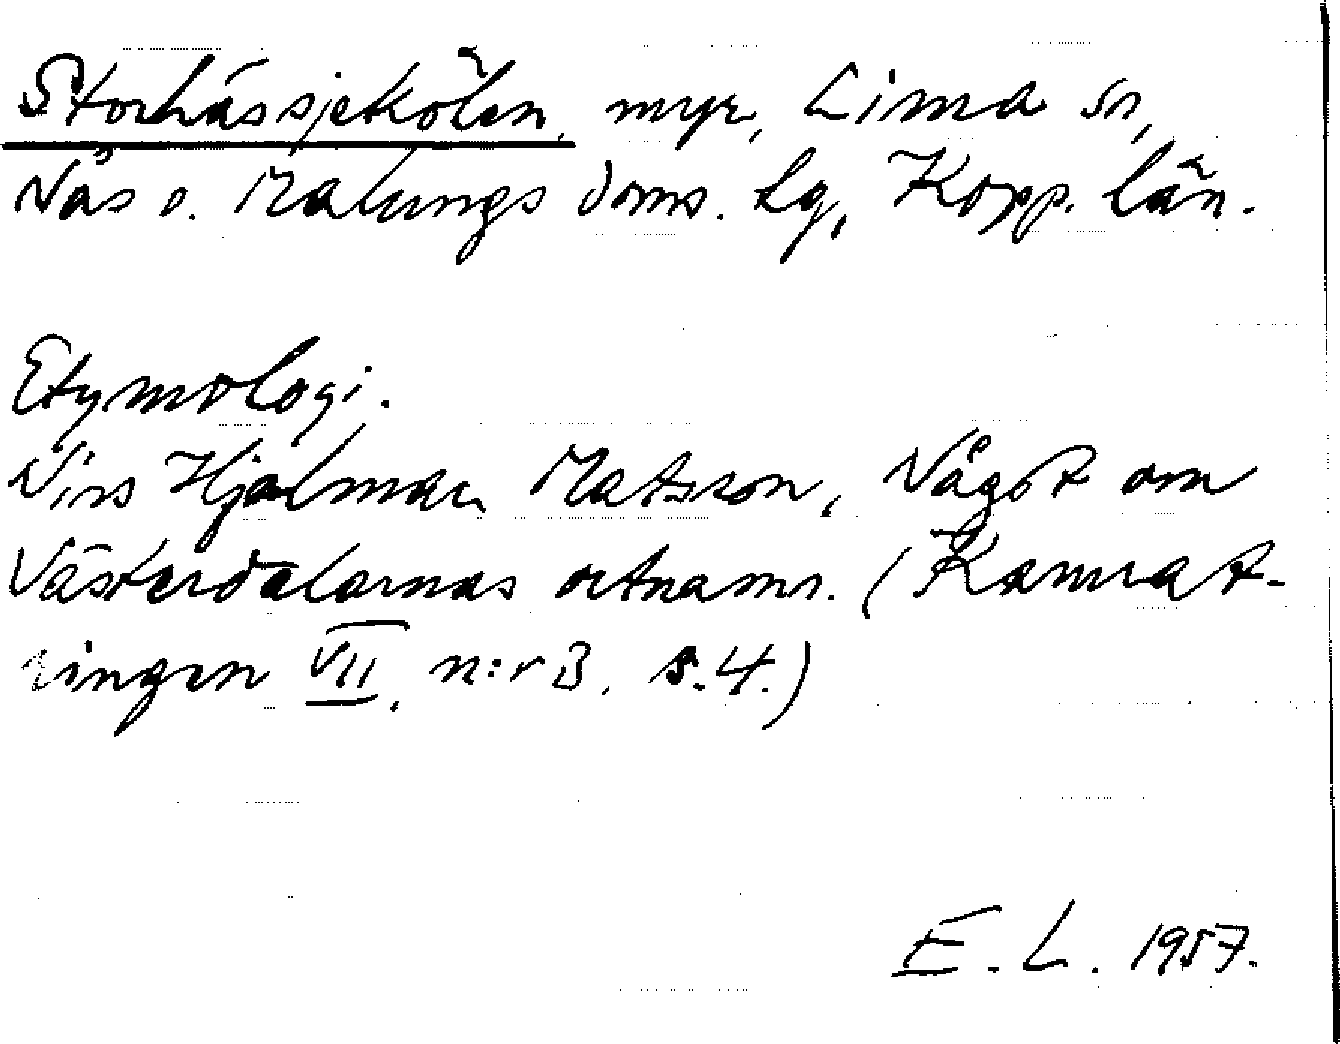 Storhässjekölen, myr, Lima sn,
Nås o. Malungs doms. lg, Kopp. län.
Etymologi.
Hjalmar Matsson, Något om
Västerdalarnas ortnamn. (Kamrat-
ringen VII, n:r 3. s. 4.)
E. L. 1957.